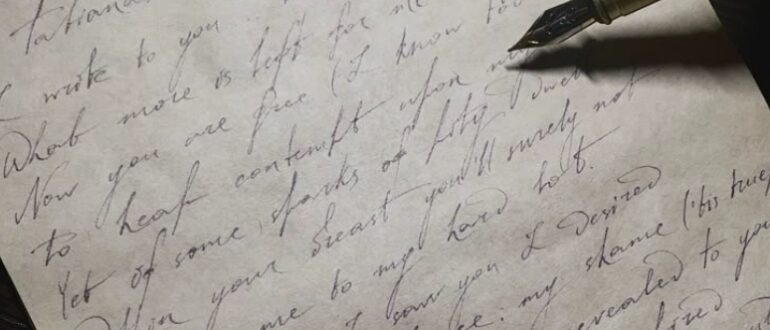 Tatiana
I write to you ..
What more is left for me
Now you are free (I know too
to heap contempt upon my
Yet if some sparks of pity dwell
upon your breast you'll surely not
me to my hard lot.
I saw you I desired
my shame ('tis true,
revealed to you